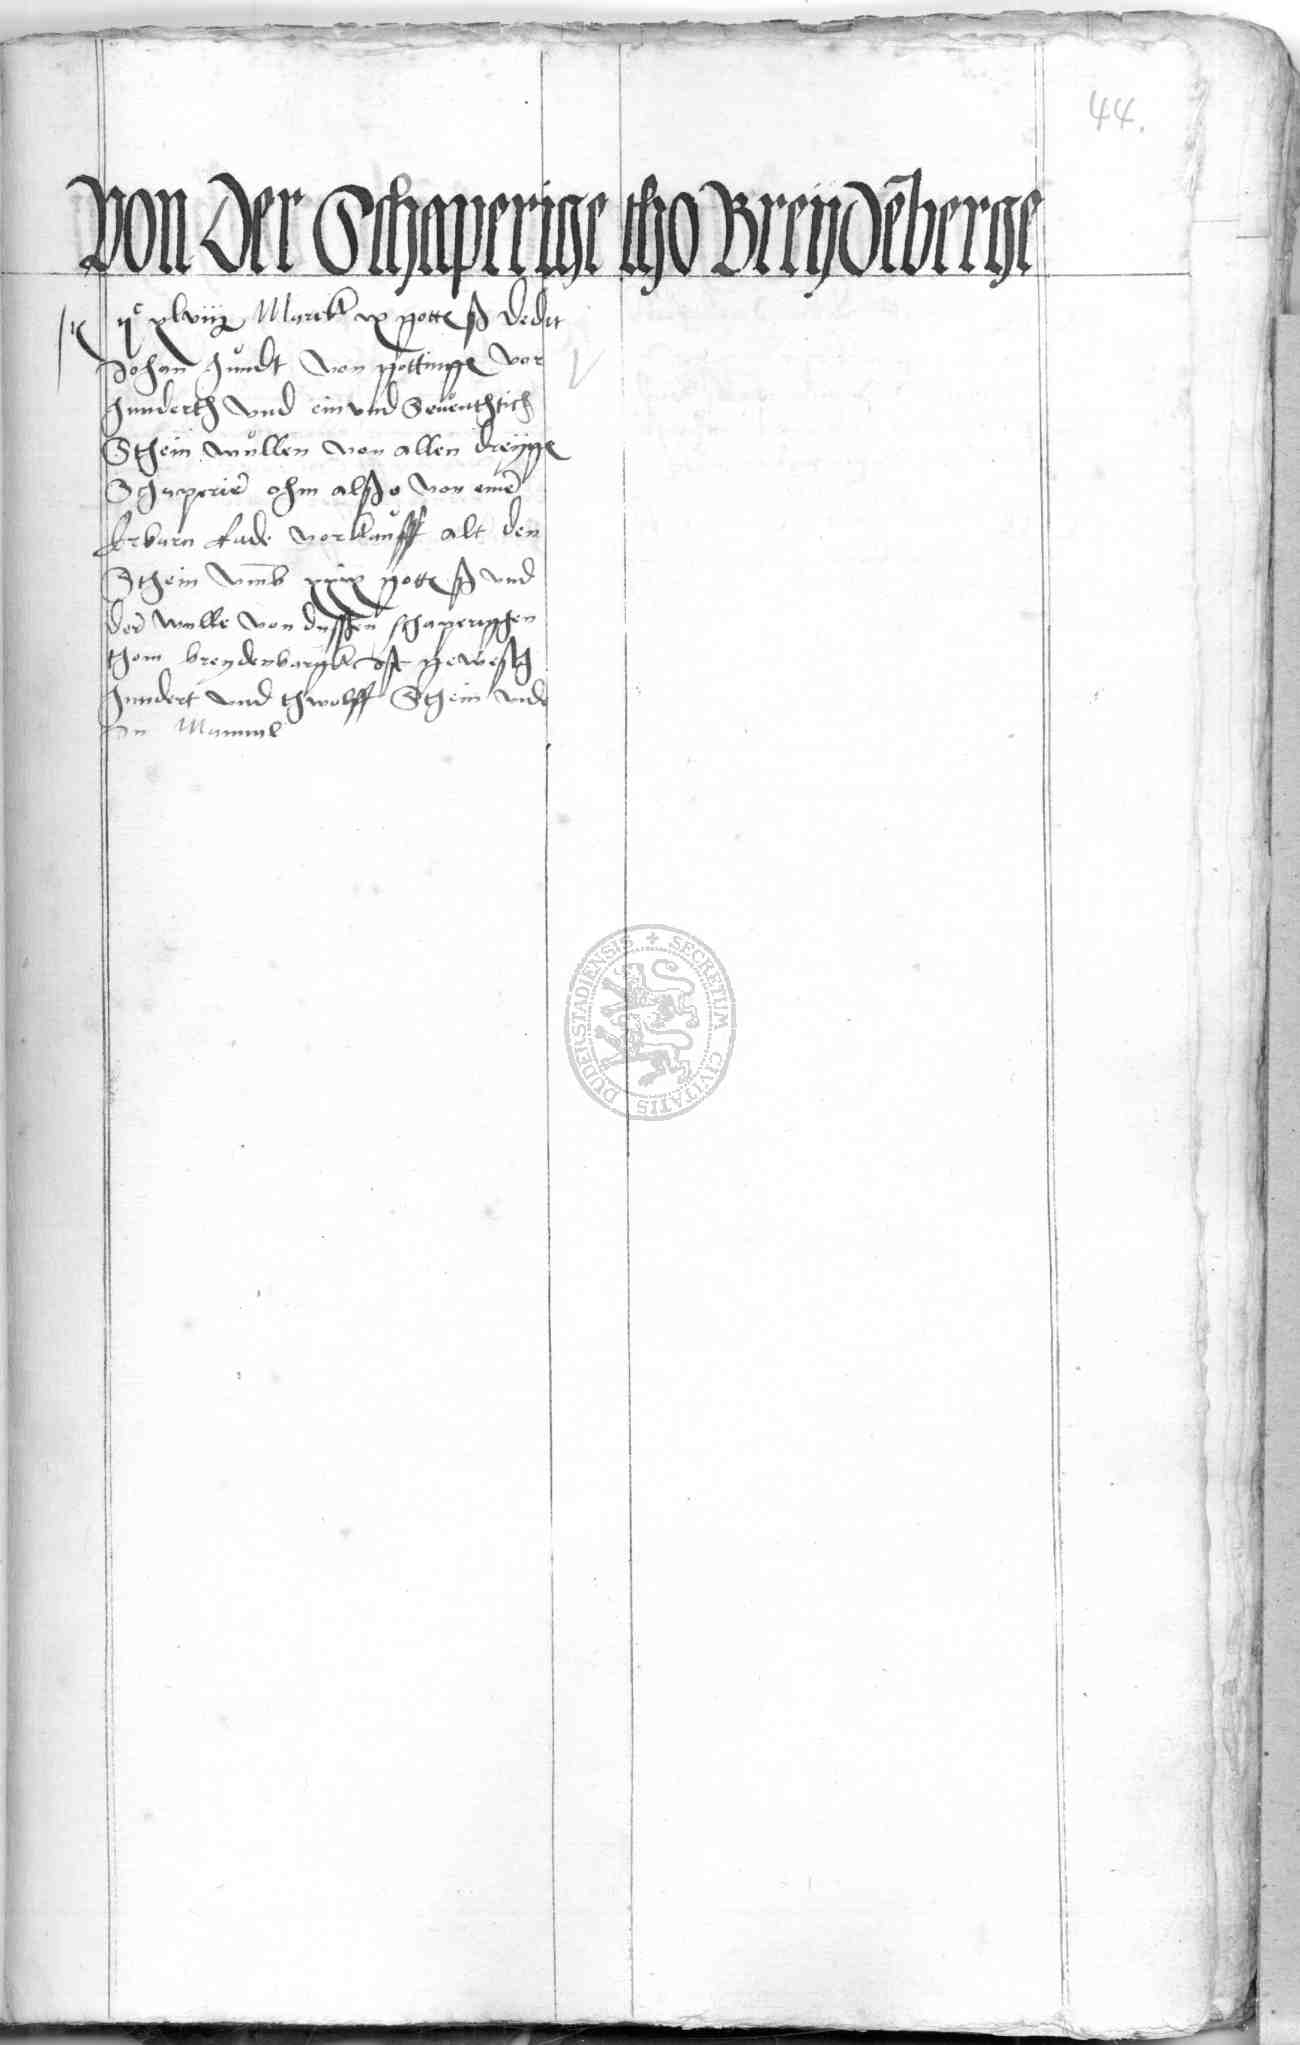 44.
Von Der Schaperige tho Breydēberge
ijc xlviij Marck ix gotteß dedit
Johan Hundt von gottinge vor
hunderth und ein und Seventhtich
Sthein wullen von allen dreyge
Schaperie ohm alßo von eine
Erbarn Rade vorkaufft alt den
Sthein umb xxix gotteß und
der wulle von dussen schaperiggen
thom breydenbargk ist geweßth
hundert und thwolff Sthein unde
SECRETUM CIVITATIS DUDERSTADIENSIS